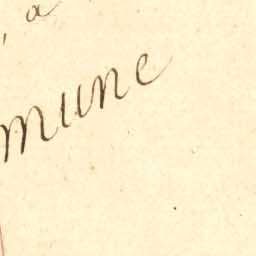 , a
mune